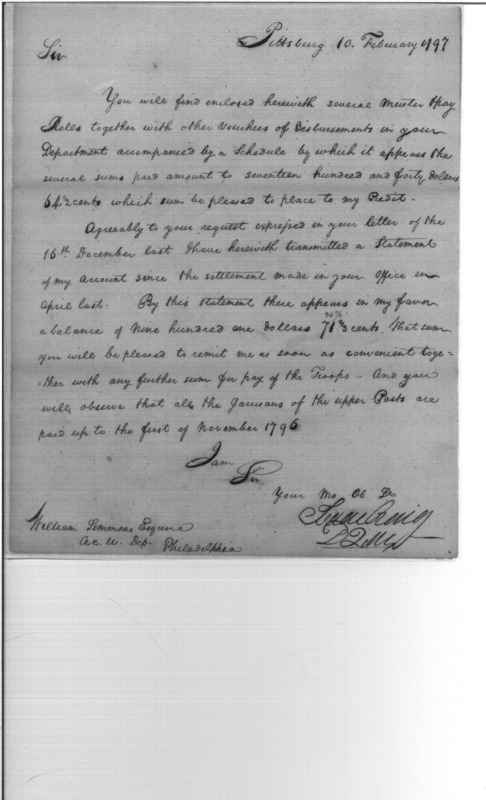 Pittsburg 10. February 1797
Sir
You will find enclosed herewith several Muster & pay
Rolls together with other Vouchers of Disbursements in your
Department accompanied by a Schedule by which it appears the
several sums paid amount to seventeen hundred and forty dollars
64½ cents which sum be pleased to place to my Credit.
Agreeably to your request expressed in your letter of the
16th. December last I have herewith transmitted a Statement
of my account since the settlement made in your office in
April last. By this statement there appears in my favor
a balance of Nine hundred one dollars 71⅔ cents, that sum
you will be pleased to remit me as soon as convenient toge-
-ther with any further sum for pay of the Troops - And you
will observe that all the Garrisons of the upper Posts are
paid up to the first of November 1796
I am
Sir
Your Mo Ob Se
Isaac Craig
DQM
William Simmons Esquire
Ac. W. Dep. Philadelphia